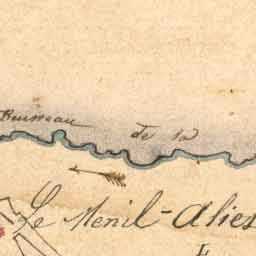 Ruisseau de la
Le Menil-Alies